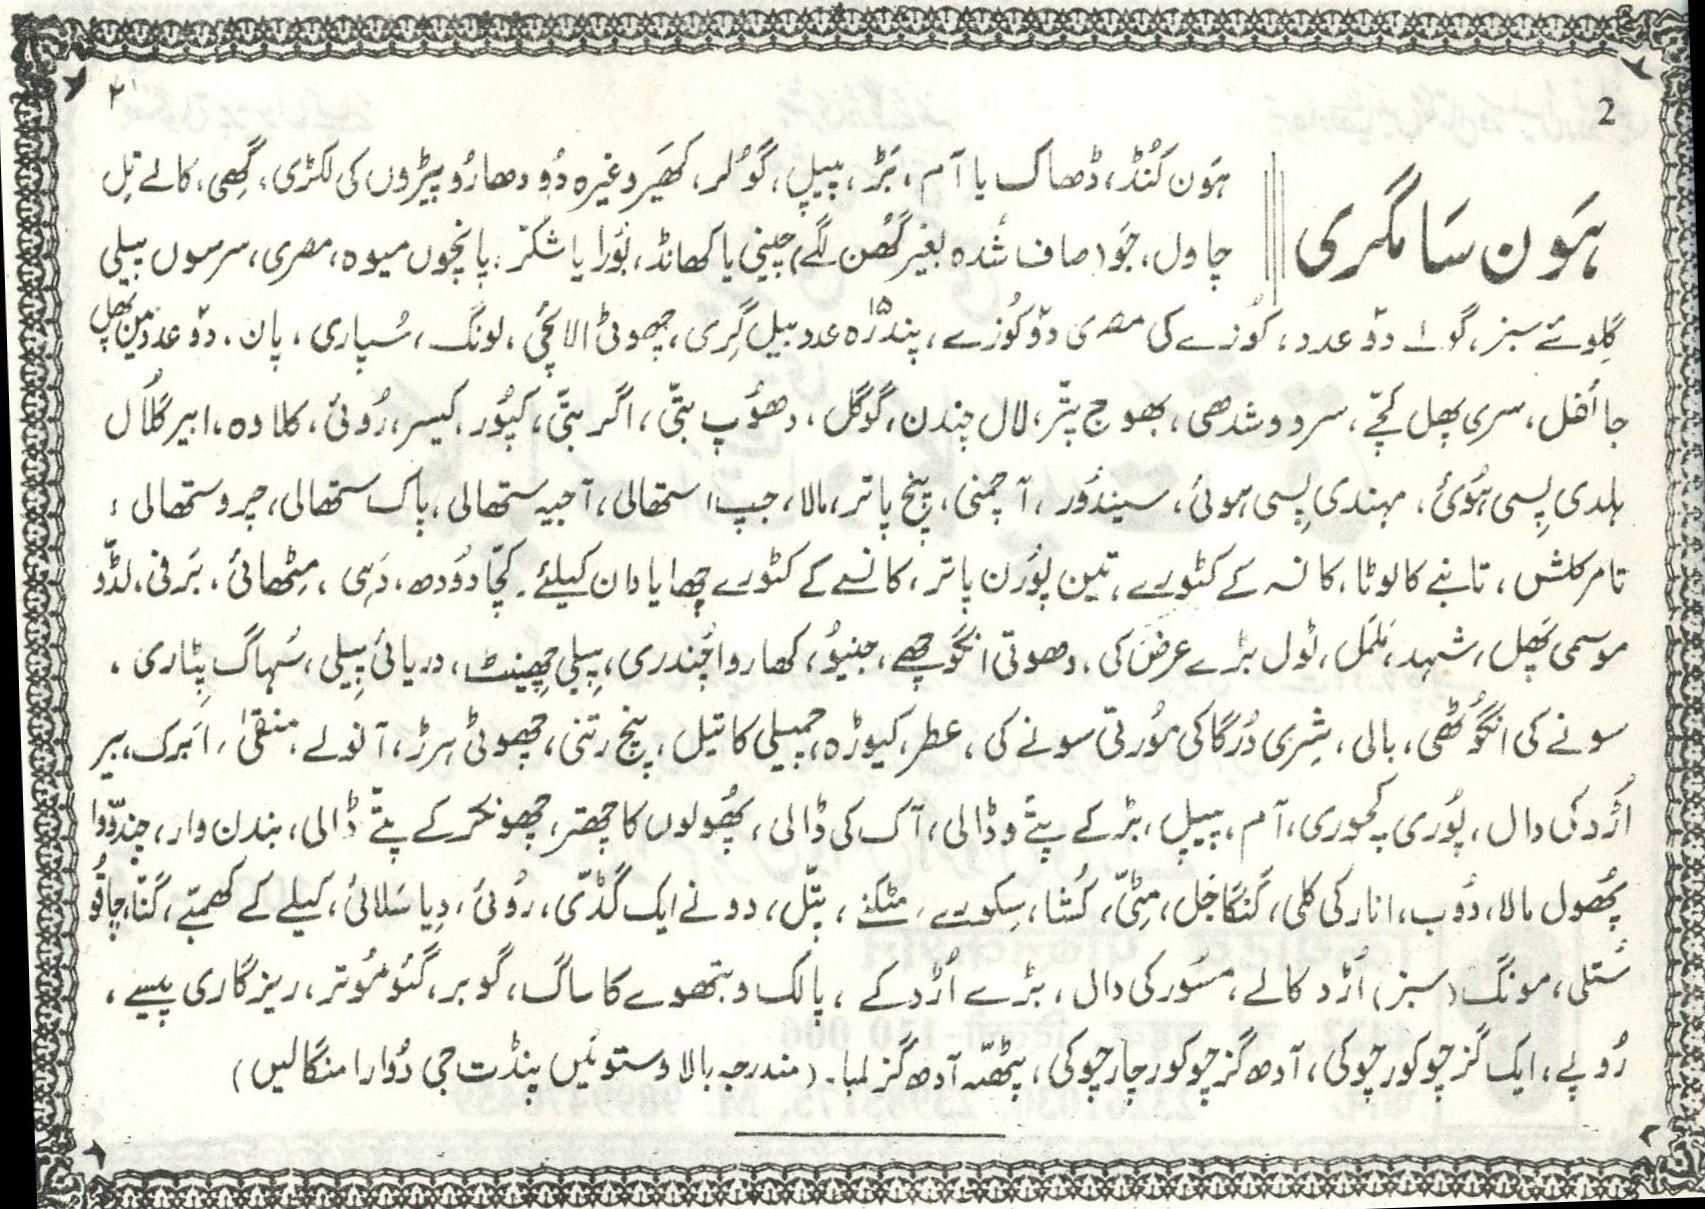 2
۲
ہَون سَامگری
ہَون کُنڈ، ڈھاک یا آم، بَڑ، پیپل، گوُلر، کھَیر وغیرہ دُودھارُو پیڑوں کی لکڑی، گھِی، کالے تِل
چاول، جَو (صاف شُدہ بغیر گھُن لگے) چینی یا کھانڈ، بُورا یا شکّر، پانچوں میوہ، مصری، سرسوں پیلی
گِلوئے سبز، گولے دوّ عدد، کُوزے کی مصری دوّ کُوزے، پندرہ ۱۵ عدد بیل گِری، چھوٹی الائچی، لونگ، سُپاری، پان، دوّ عدد مین پھل
جائفل، سری پھل کچّے، سرووشدھی، بھوج پتّر، لال چندن، گوگل، دھوُپ بتّی، اگر بتّی، کپوُر، کیسر، رُوئی، کلاوہ، ابیر گُلال
ہلدی پِسی ہوُئی، مہندی پِسی ہوئی، سیندوُر، آچمنی، پنچ پاتر، مالا، جپ استھالی، آجیہ ستھالی، پاک ستھالی، چروستھالی،
تامر کلش، تانبے کا لوٹا، کانسہ کے کٹورے، تین پوُرن پاتر، کانسے کے کٹورے چھایا دان کیلئے۔ کچّا دوُدھ، دَہی، مِٹھائی، بَرفی، لڈّو
موسمی پھَل، شہد، مَلمَل، ٹول بڑے عرض کی، دھوتی انگوچھے، جنیوُ، کھاروا چُندری، پِیلی چھِینٹ، دریائی پِیلی، سُہاگ پِٹاری،
سونے کی انگوُٹھی، بالی، شِری دُرگا کی موُرتی سونے کی، عطر، کیوڑہ، چمیلی کا تیل، پنچ رتنی، چھوٹی ہرڑ، آنولے، منقیٰ، اَبرک، بیر
اُڑد کی دال، پوُری کچوری، آم، پیپل، بڑ کے پتّے و ڈالی، آک کی ڈالی، پھوُلوں کا چھتر، چھونکر کے پتّے ڈالی، بندن وار، چندوّا
پھُول مالا، دوُب، انار کی کلی، گنگا جَل، مِٹّی، کُشا، سِکورے، مٹکنے، پتّل، دونے ایک گڈّی، رُوئی، دِیا سَلائی، کیلے کے کھمبّے، گنّا، چاقوُ
سُتلی، مونگ (سبز) اُڑد کالے، مسُور کی دال، بڑے اُڑد کے، پالک و بتھوے کا ساگ، گوبر، گئو مُوتر، ریزگاری پیسے،
رُوپے، ایک گز چوکور چوکی، آدھ گز چوکور چار چوکی، پٹھّہ آدھ گز لمبا۔ (مندرجہ بالا وستوئیں پنڈت جی دُوارا منگالیں)